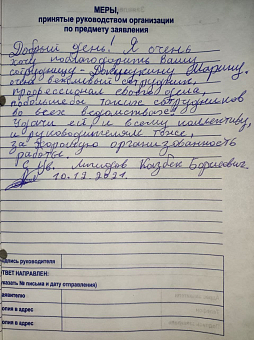 МЕРЫ,
принятые руководством организации
по предмету заявления
Добрый день! Я очень
хочу поблагодарить Вашу
сотрудницу - Марину.
очень вежливый сотрудник,
профессионал своего дела,
побольше таких сотрудников
во всех ведомствах!
Удачи ей и всему коллективу,
и руководителям тоже,
за хорошую организованность
работы.
С Ув. Казбек Борисович.
10.12.2021.
дпись руководителя
ТВЕТ НАПРАВЛЕН:
указать № письма и дату отправления)
аявителю
опия в адрес
опия в адрес